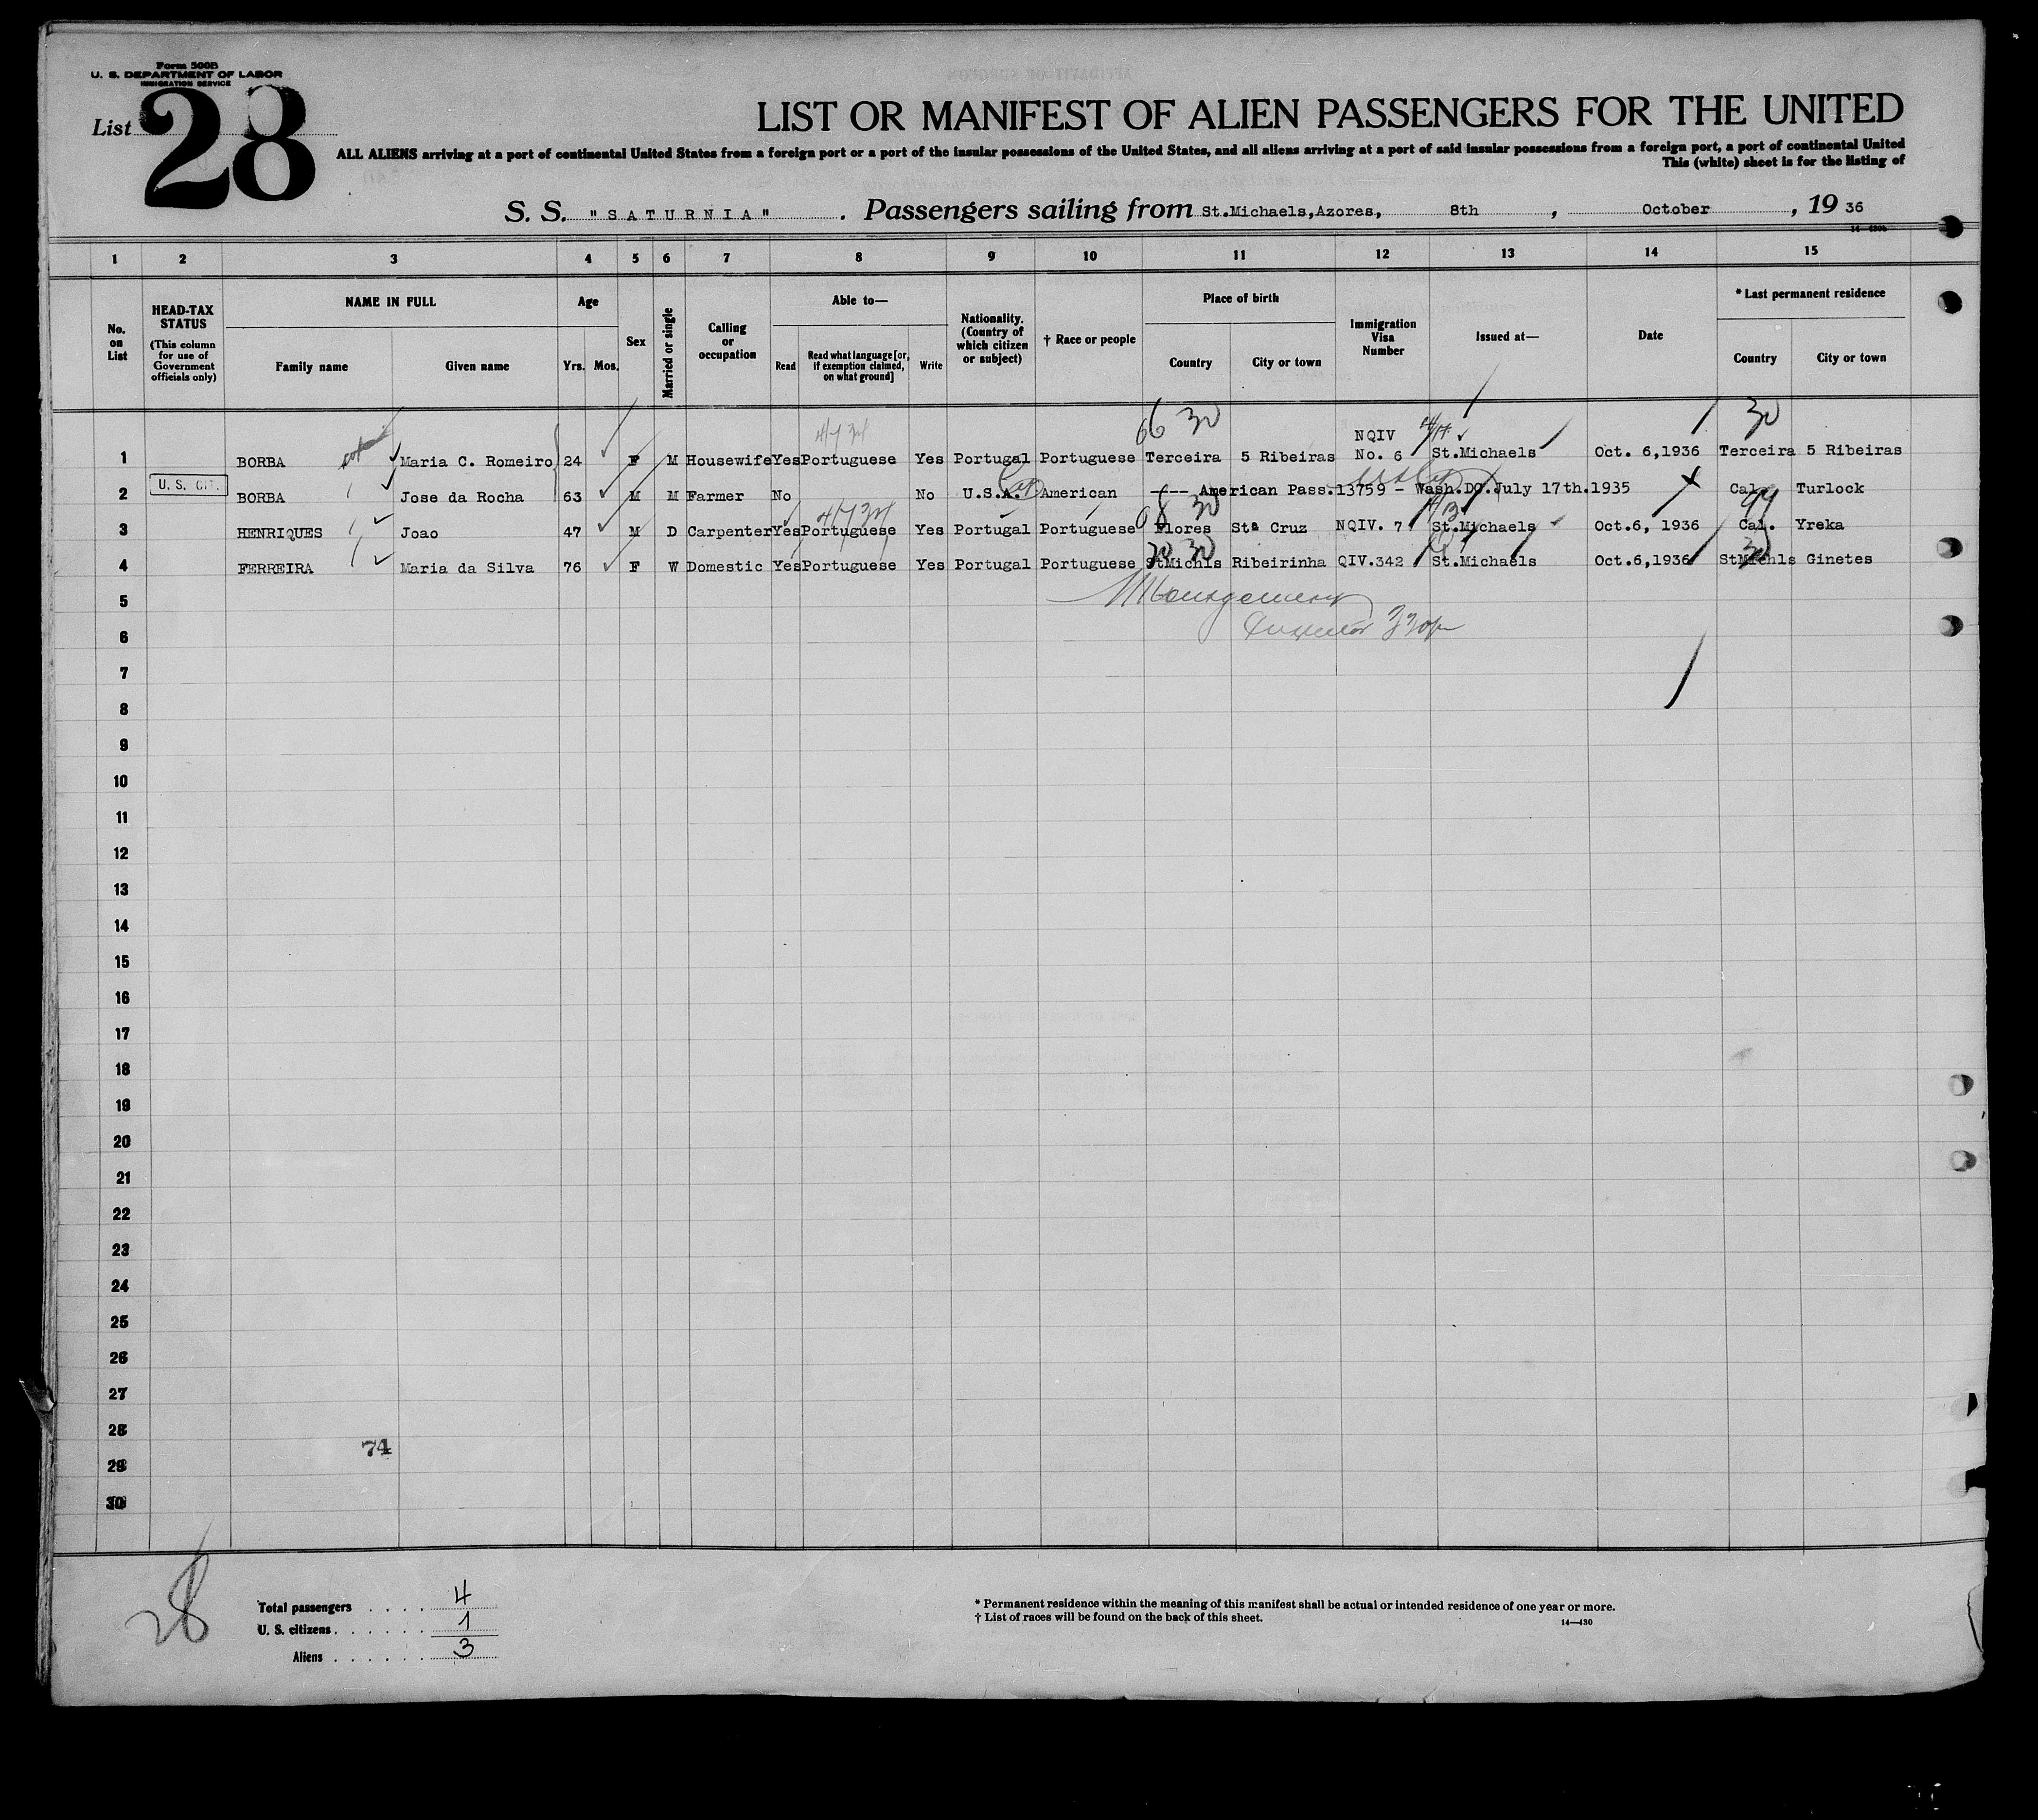 Form 500B
U. S. DEPARTMENT OF LABOR
IMMIGRATION SERVICE
List 28
LIST OR MANIFEST OF ALIEN PASSENGERS FOR THE UNITED
ALL ALIENS arriving at a port of continental United States from a foreign port or a port of the insular possessions of the United States, and all aliens arriving at a port of said insular possessions from a foreign port, a port of continental United
This (white) sheet is for the listing of
S. S. "SATURNIA". Passengers sailing from St.Michaels,Azores, 8th, October, 19 36
1 2 3 4 5 6 7 8 9 10 11 12 13 14 15
No. on List
HEAD-TAX STATUS (This column for use of Government officials only)
NAME IN FULL Family name Given name
Age Yrs. Mos.
Sex
Married or single
Calling or occupation
Able to— Read Read what language [or, if exemption claimed, on what ground] Write
Nationality. (Country of which citizen or subject)
† Race or people
Place of birth Country City or town
Immigration Visa Number
Issued at—
Date
* Last permanent residence Country City or town
66 30 30
4/7 34
1 BORBA Maria C. Romeiro 24 F M Housewife Yes Portuguese Yes Portugal Portuguese Terceira 5 Ribeiras NQIV No. 6 St.Michaels Oct. 6,1936 Terceira 5 Ribeiras
2 U. S. CIT. BORBA Jose da Rocha 63 M M Farmer No No U.S.A. American ---- American Pass.13759 - Wash.DC.July 17th.1935 Cal. Turlock
3 HENRIQUES Joao 47 M D Carpenter Yes Portuguese Yes Portugal Portuguese Flores Stª Cruz NQIV. 7 St.Michaels Oct.6, 1936 Cal. Yreka
4 FERREIRA Maria da Silva 76 F W Domestic Yes Portuguese Yes Portugal Portuguese StMichls Ribeirinha QIV.342 St.Michaels Oct.6,1936 StMichls Ginetes
5 Montgomery
6 Inspector
7
8
9
10
11
12
13
14
15
16
17
18
19
20
21
22
23
24
25
26
27
28
74
29
30
28
Total passengers . . . . 4
U. S. citizens . . . . . . 1
Aliens . . . . . . 3
* Permanent residence within the meaning of this manifest shall be actual or intended residence of one year or more.
† List of races will be found on the back of this sheet.
14—430